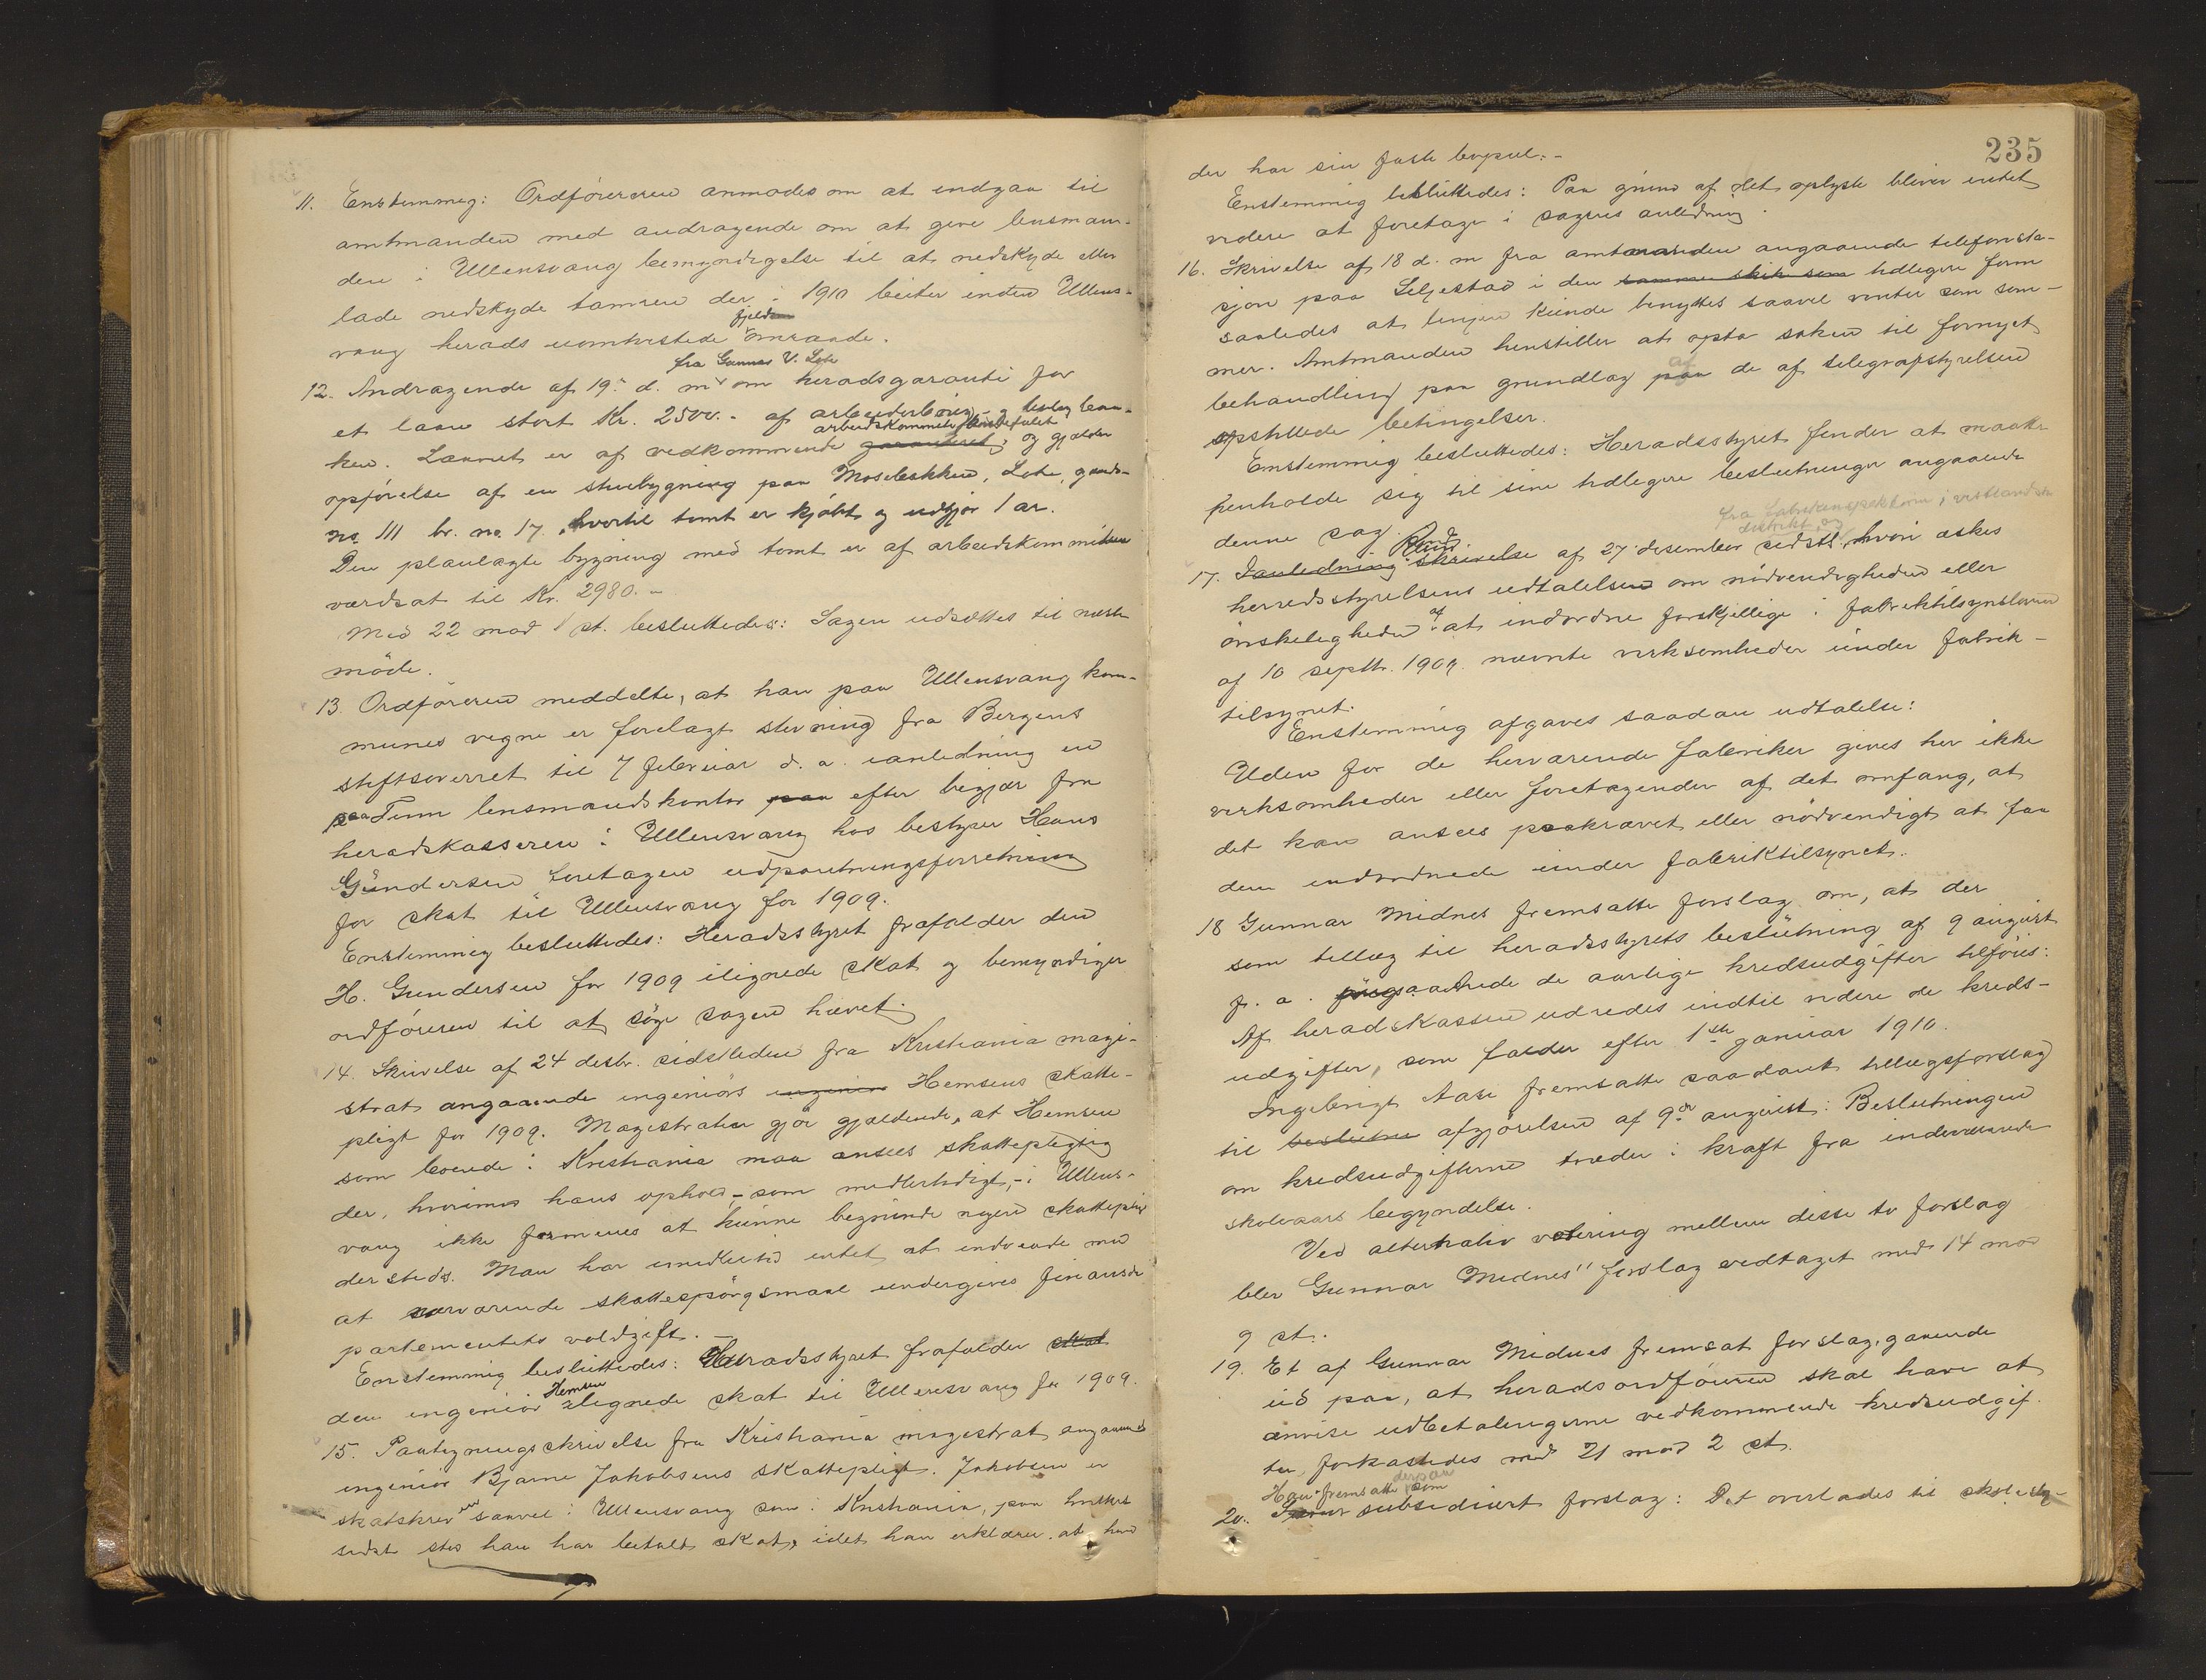 11. Enstemmig: Ordföreren anmodes om at indgaa til
amtmanden med andragende om at give lensman-
den i Ullensvang bemyndigelse til at nedskyde eller
lade nedskyde tamren der i 1910 beiter inden Ullens-
fjeld
vang herads uomtvistede omraade.
fra Gunnar V. Lote
12. Andragende af 19. d. m. om heradsgaranti for
et laan stort Kr. 2500.- af arbeiderbrug- og boligban-
arbeidskommite anbefalet
ken. Laanet er af vedkommende garanteret, og gjælder
opförelse af en stuebygning paa Moseleskken, Lote, gaards-
no. 111 br. no. 17, hvortil tomt er kjöbt og udgjör 1 ar.
Den planlagte bygning med tomt er af arbeidskommiteen
værdsat til Kr. 2980.-
Med 22 mod 1 st. besluttedes: Sagen udsættes til næste
möde.
13. Ordföreren meddelte, at han paa Ullensvang kom-
munes vegne er forelagt stevning fra Bergens
stiftsoverret til 7 februar d. a. ianledning en
paa Tinn lensmandskontor paa efter begjær fra
heradskasseren i Ullensvang hos bestyrer Hans
Gundersen foretagen udpantningsforretning
for skat til Ullensvang for 1909.
Enstemmig besluttedes: Heradsstyret frafalder den
H. Gundersen for 1909 ilignede skat og bemyndiger
ordföreren til at söge sagen hævet.
14. Skrivelse af 24 desbr. sidstleden fra Kristiania magi-
strat angaaende ingeniörs ingeniör Hemsens skatte-
pligt for 1909. Magistraten gjör gjældende, at Hemsen
som boende i Kristiania maa ansees skattepligtig
der, hvorimod hans ophold,- som midlertidigt,- i Ullens-
vang ikke formenes at kunne begrunde nogen skattepligt
dersteds. Man har imidlertid intet at indvende mod
at nærværende skattespörgsmaal undergives finansde
partementets voldgift.-
Enstemmig besluttedes: Heradsstyret frafalder skat
Hemsen
den ingeniör ilignede skat til Ullensvang for 1909.
15. Paategningsskrivelse fra Kristiania magistrat angaaende
ingeniör Bjarne Jakobsens skattepligt. Jakobsen er
skatskreven saavel i Ullensvang som i Kristiania, paa hvilket
sidst sted han har betalt skat, idet han erklærer, at han
235
der har sin faste bopæl.-
Enstemmig besluttedes: Paa grund af det oplyste bliver intet
videre at foretage i sagens anledning.
16. Skrivelse af 18 d. m fra amtmanden angaaende telefonsta-
sjon paa Seljestad i den samme skik som tidligere form
saaledes at linjen kunde benyttes saavel vinter som som-
mer. Amtmanden henstiller at opta saken til fornyet
af
behandling paa grundlag paa de af telegrafstyrelsen
opstillede betingelser.
Enstemmig besluttedes: Heradsstyret finder at maatte
henholde sig til sine tidligere beslutninger angaaende
denne sag.
fra fabrikinspektören i vestlandske
distrikt, og
Rund
17. Ianledning skrivelse af 27 desember sidstl., hvori æskes
herredsstyrelsens udtalelse om nödvendigheden eller
önskeligheden af at indordne forskjellige i fabriktilsynsloven
af 10 septbr. 1909 nævnte virksomheder under fabrik-
tilsynet.
Enstemmig afgaves saadan udtalelse:
Uden for de herværende fabriker gives her ikke
virksomheder eller foretagender af det omfang, at
det kan ansees paakrævet eller nödvendigt at faa
dem indordnede under fabriktilsynet.
18 Gunnar Midnes fremsatte forslag om, at der
som tillæg til heradsstyrets beslutning af 9 august
f. a. angaaende de aarlige kredsudgifter tilföies:
Af heradskassen udredes indtil videre de kreds-
udgifter, som falder efter 1ste januar 1910.
Ingebrigt Aase fremsatte saadant tillægsforslag
til beslutne afgjörelsen af 9de august: Beslutningen
om kredsudgifterne træder i kraft fra indeværende
skoleaars begyndelse.
Ved alternativ votering mellem disse to forslag
blev Gunnar Midnes' forslag vedtaget med 14 mod
9 st.
19. Et af Gunnar Midnes fremsat forslag, gaaende
ud paa, at heradsordföreren skal have at
anvise udbetalingerne vedkommende kredsudgif-
ter, forkastedes med 21 mod 2 st.
derpaa
Han fremsatte som
20. subsidiært forslag: Det overlades til skolesty-